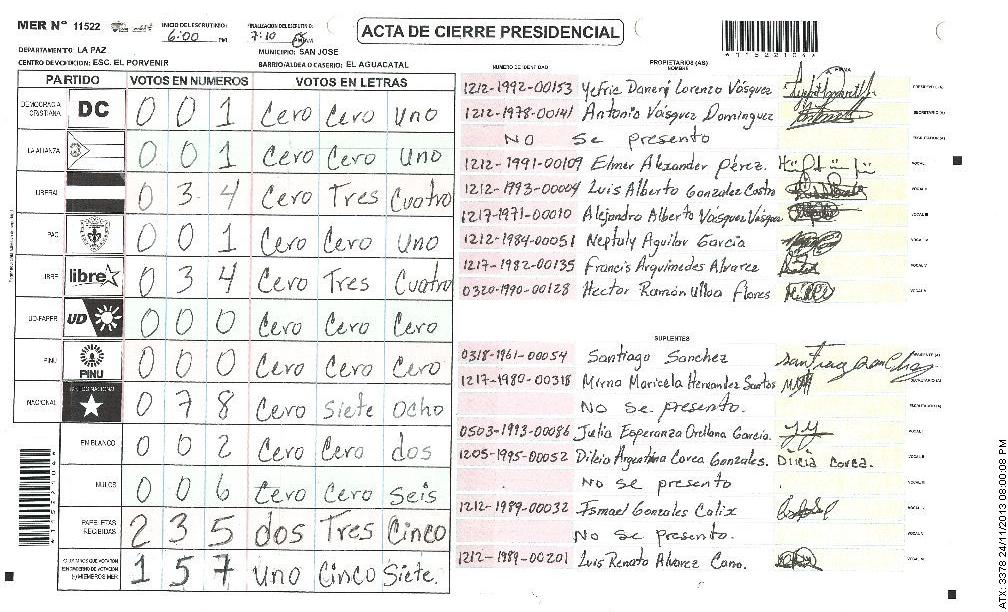 MER Nº 11522
INICIO DEL ESCRUTINIO: 6:00 PM
FINALIZACION DEL ESCRUTINIO: 7:10
ACTA DE CIERRE PRESIDENCIAL
DEPARTAMENTO: LA PAZ
MUNICIPIO: SAN JOSE
CENTRO DE VOTACION: ESC. EL PORVENIR
BARRIO/ALDEA O CASERIO: EL AGUACATAL
PARTIDO VOTOS EN NUMEROS VOTOS EN LETRAS
DEMOCRACIA CRISTIANA DC 0 0 1 Cero Cero Uno
LA ALIANZA 0 0 1 Cero Cero Uno
LIBERAL 0 3 4 Cero Tres Cuatro
PAC 0 0 1 Cero Cero Uno
LIBRE libre 0 3 4 Cero Tres Cuatro
UD-FAPER UD 0 0 0 Cero Cero Cero
PINU PINU 0 0 0 Cero Cero Cero
NACIONAL 0 7 8 Cero Siete Ocho
EN BLANCO 0 0 2 Cero Cero dos
NULOS 0 0 6 Cero Cero Seis
PAPELETAS RECIBIDAS 2 3 5 dos Tres Cinco
1 5 7 Uno Cinco Siete.
NUMERO DE IDENTIDAD
PROPIETARIOS (AS)
NOMBRE
FIRMA
1212-1992-00153 Yefrie Danery Lorenzo Vásquez
1212-1978-00141 Antonio Vásquez Dominguez
No Se presento
1212-1991-00109 Elmer Alexander Pérez.
1212-1993-00004 Luis Alberto Gonzalez Castro
1217-1971-00010 Alejandro Alberto Vásquez Vásquez
1212-1984-00051 Neptuly Aguilar Garcia
1217-1982-00135 Francis Arquimedes Alvarez
0320-1990-00128 Hector Ramón Ulloa Flores
SUPLENTES
0318-1961-00054 Santiago Sanchez
1217-1980-00318 Mirna Maricela Hernandez Santos
No Se presento.
0503-1993-00086 Julia Esperanza Orellana Garcia.
1205-1995-00052 Dilcia Argentina Corea Gonzales. Dilcia Corea.
No se presento
1212-1989-00032 Ismael Gonzales Calix
No Se presento.
1212-1989-00201 Luis Renato Alvarez Cano.
ATX: 3378 24/11/2013 08:00:08 PM